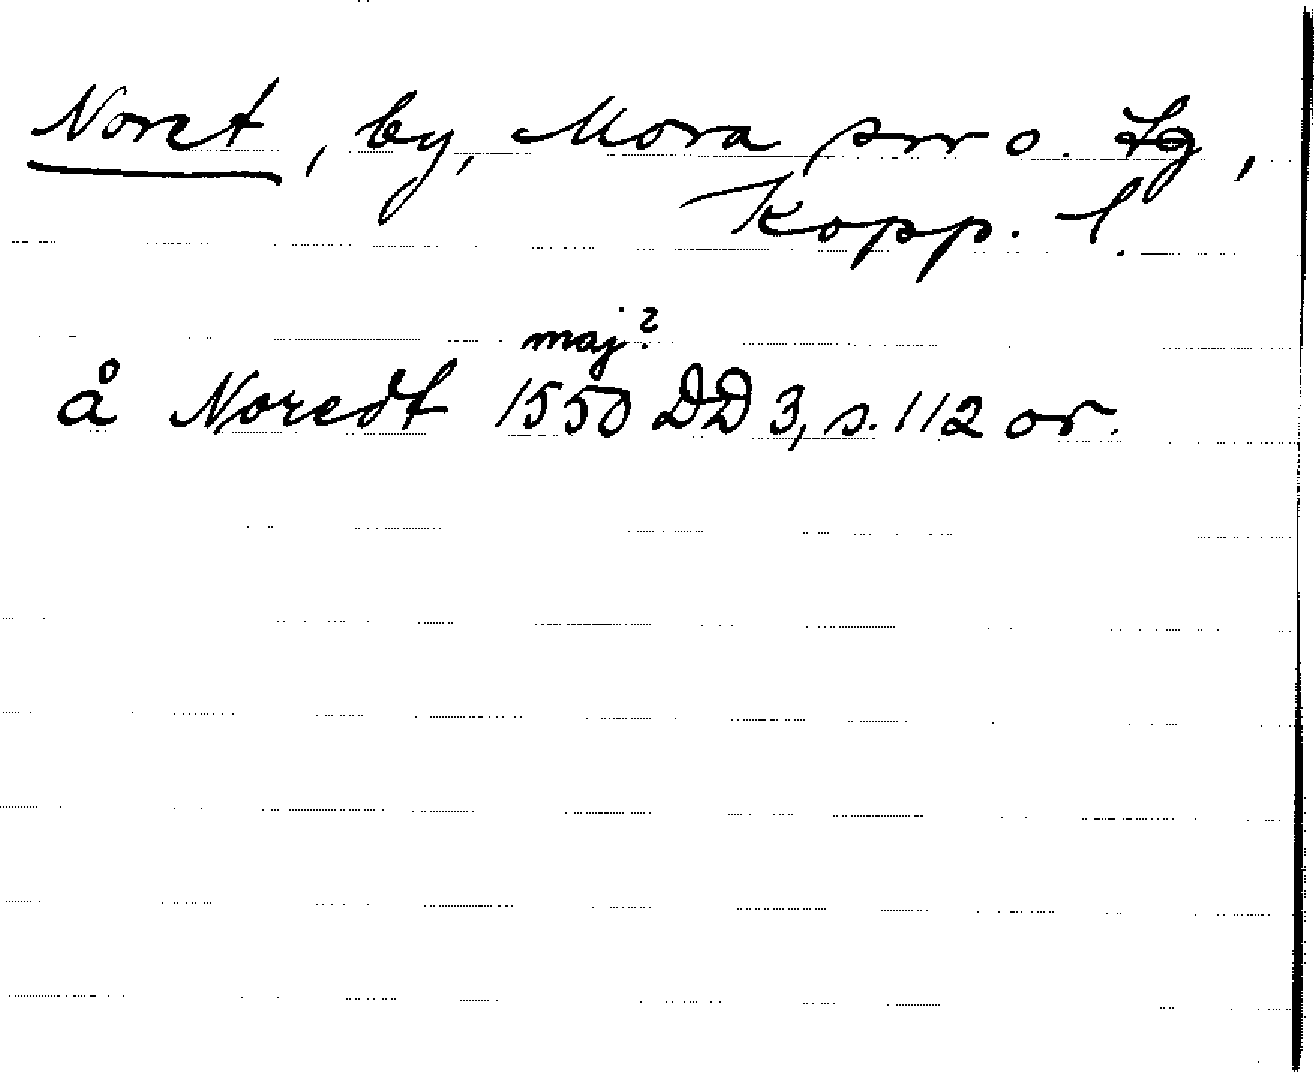 Noret, by, Mora sn o. tg,
Kopp. l.
maj?
å Noredt 1550 DD 3, s. 112 or.